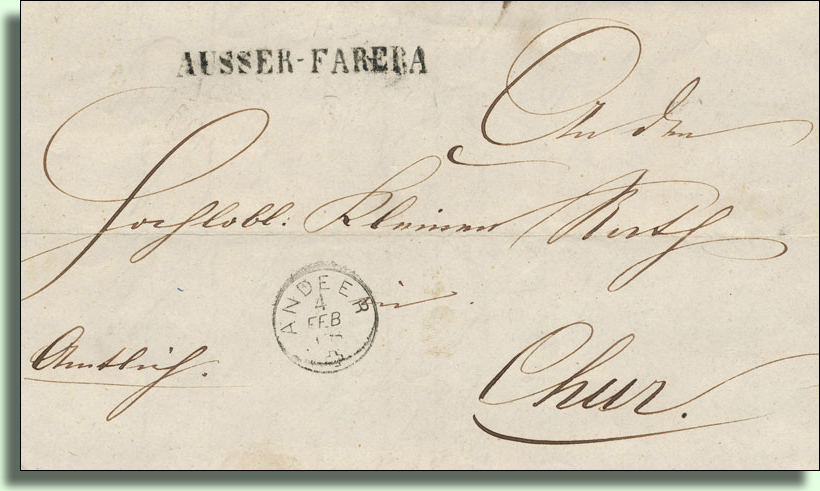 AUSSER-FARERA
An den
Hochlobl: Kleinen Rath
in
ANDEER
4
FEB
Amtlich.
Chur.